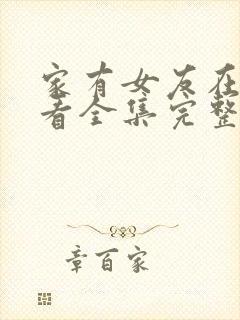 家有女友在
看全集完整
章百家